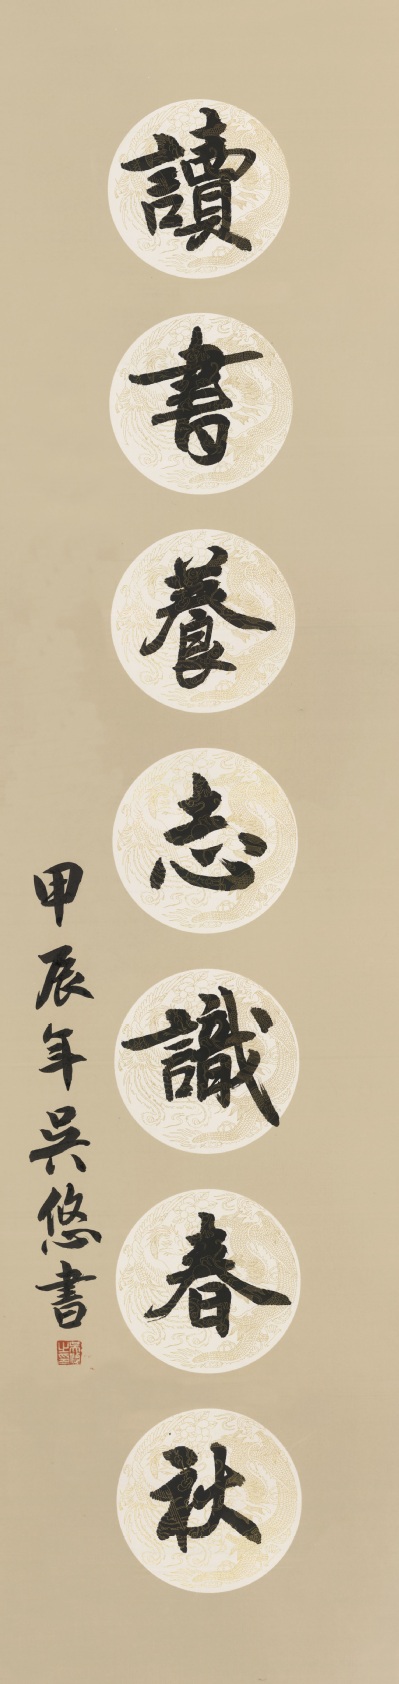 讀書養志識春秋
甲辰年吳悠書